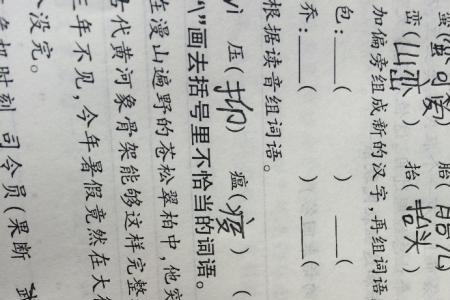 胎(胎儿
峦(山峦) 抬(抬头)
加偏旁组成新的汉字,再组词语
包:____( ) ____(
乔:____( ) ____(
根据读音组词语。
yì 压(抑) 瘟(疫) (
“\”画去括号里不恰当的词语。
在漫山遍野的苍松翠柏中,他突
代黄河象骨架能够这样完整
三年不见,今年暑假竟然在大
没完。
机时刻,司令员(果断 武